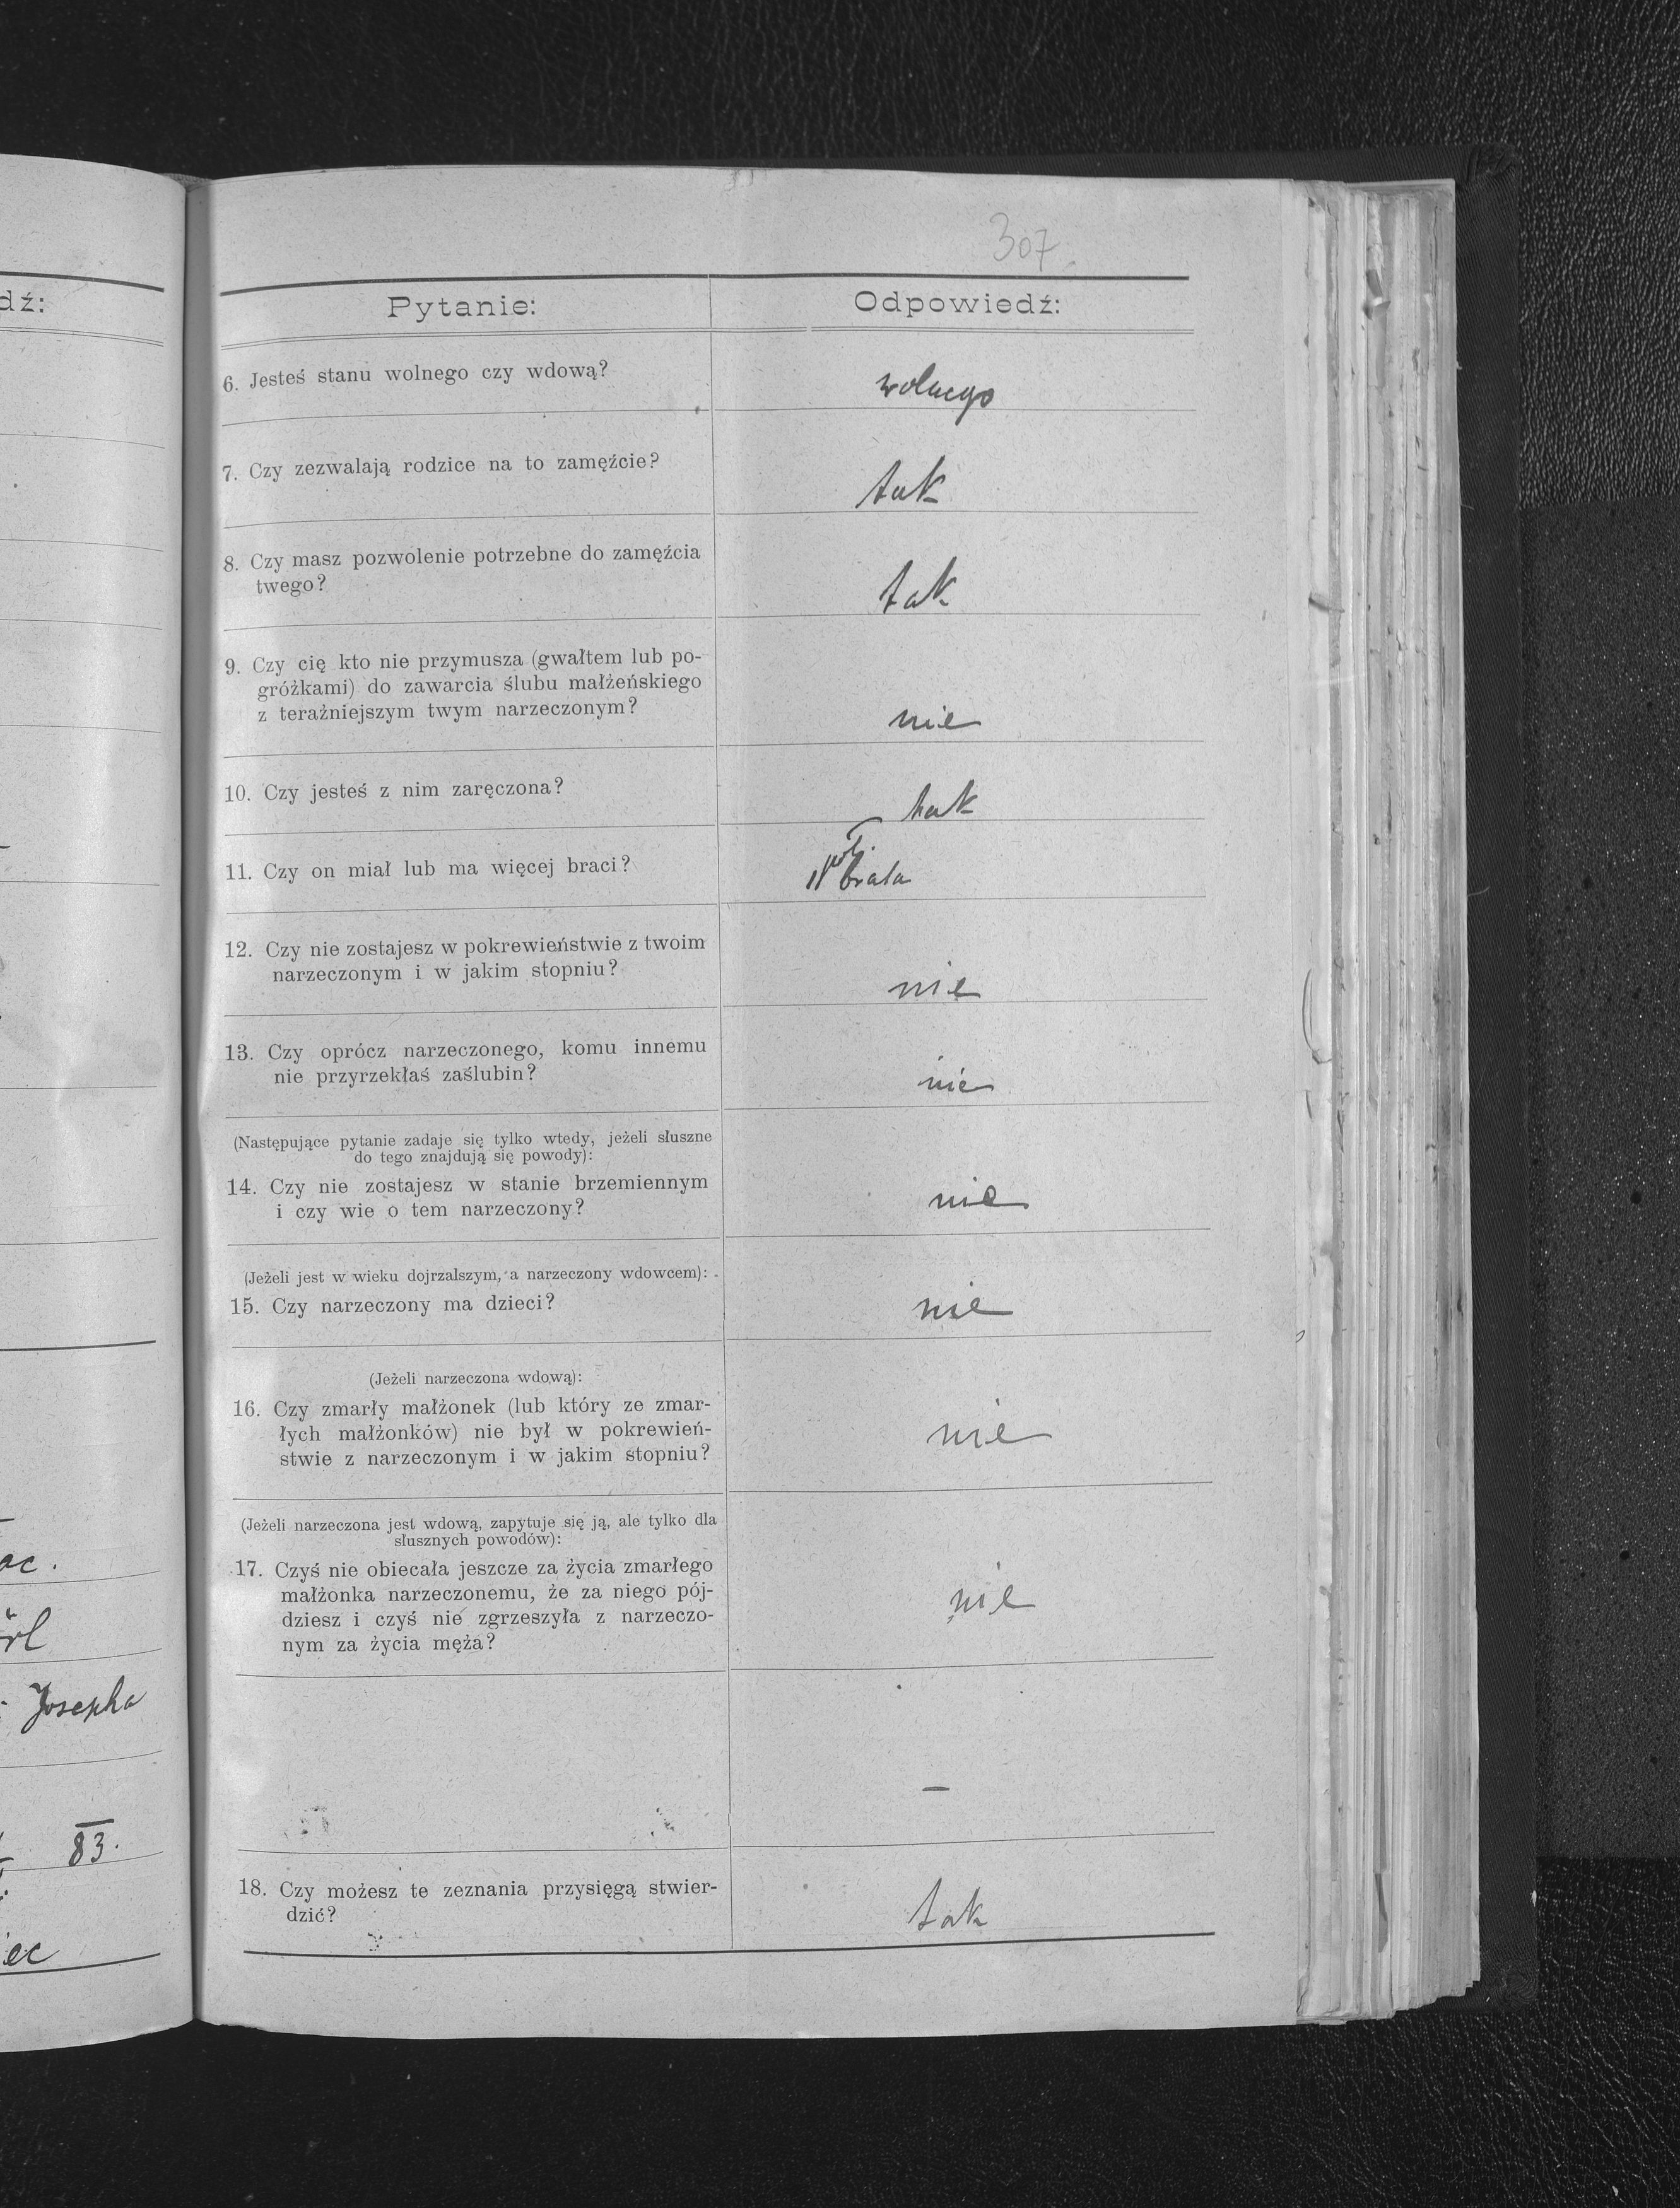 307
dź:
Pytanie:
Odpowiedź:
6. Jesteś stanu wolnego czy wdową?
wolnego
7. Czy zezwalają rodzice na to zamęźcie?
tak
8. Czy masz pozwolenie potrzebne do zamęźcia
twego?
tak
9. Czy cię kto nie przymusza (gwałtem lub po-
gróżkami) do zawarcia ślubu małżeńskiego
z teraźniejszym twym narzeczonym?
nie
10. Czy jesteś z nim zaręczona?
tak
11. Czy on miał lub ma więcej braci?
brata
12. Czy nie zostajesz w pokrewieństwie z twoim
narzeczonym i w jakim stopniu?
nie
13. Czy oprócz narzeczonego, komu innemu
nie przyrzekłaś zaślubin?
nie
(Następujące pytanie zadaje się tylko wtedy, jeżeli słuszne
do tego znajdują się powody):
14. Czy nie zostajesz w stanie brzemiennym
i czy wie o tem narzeczony?
nie
(Jeżeli jest w wieku dojrzalszym, a narzeczony wdowcem):
15. Czy narzeczony ma dzieci?
nie
(Jeżeli narzeczona wdową):
16. Czy zmarły małżonek (lub który ze zmar-
łych małżonków) nie był w pokrewień-
stwie z narzeczonym i w jakim stopniu?
nie
(Jeżeli narzeczona jest wdową, zapytuje się ją, ale tylko dla
słusznych powodów):
17. Czyś nie obiecała jeszcze za życia zmarłego
małżonka narzeczonemu, że za niego pój-
dziesz i czyś nie zgrzeszyła z narzeczo-
nym za życia męża?
nie
–
18. Czy możesz te zeznania przysięgą stwier-
dzić?
tak
Josepha
83.